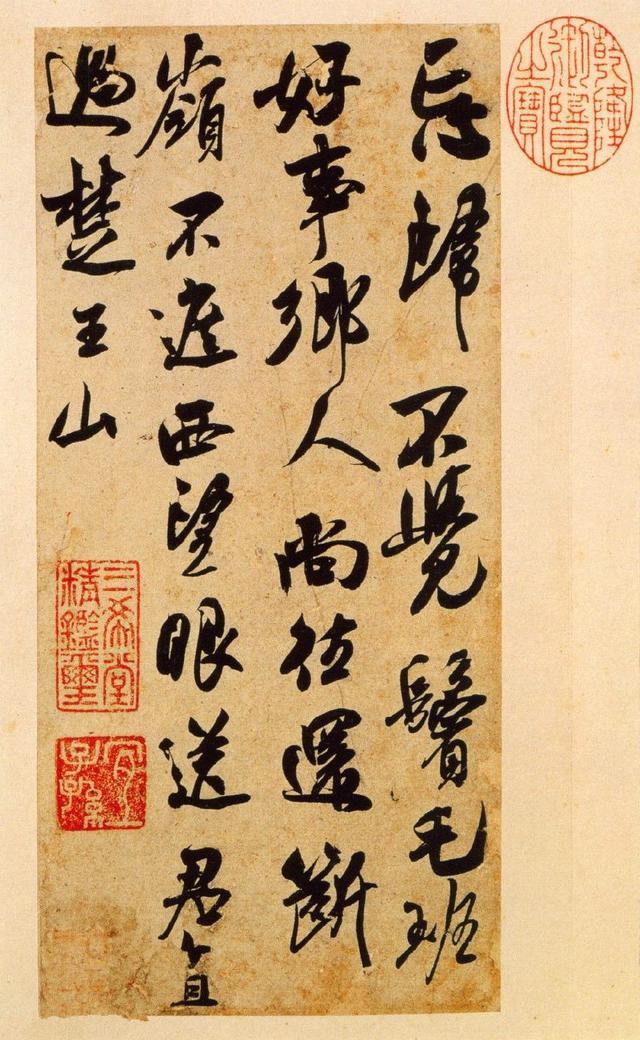 忘歸不覺鬢毛班
好事鄉人尚往還斷
嶺不遮西望眼送君直
過楚王山
乾隆御覽之寶
三希堂精鑑璽
宜子孫